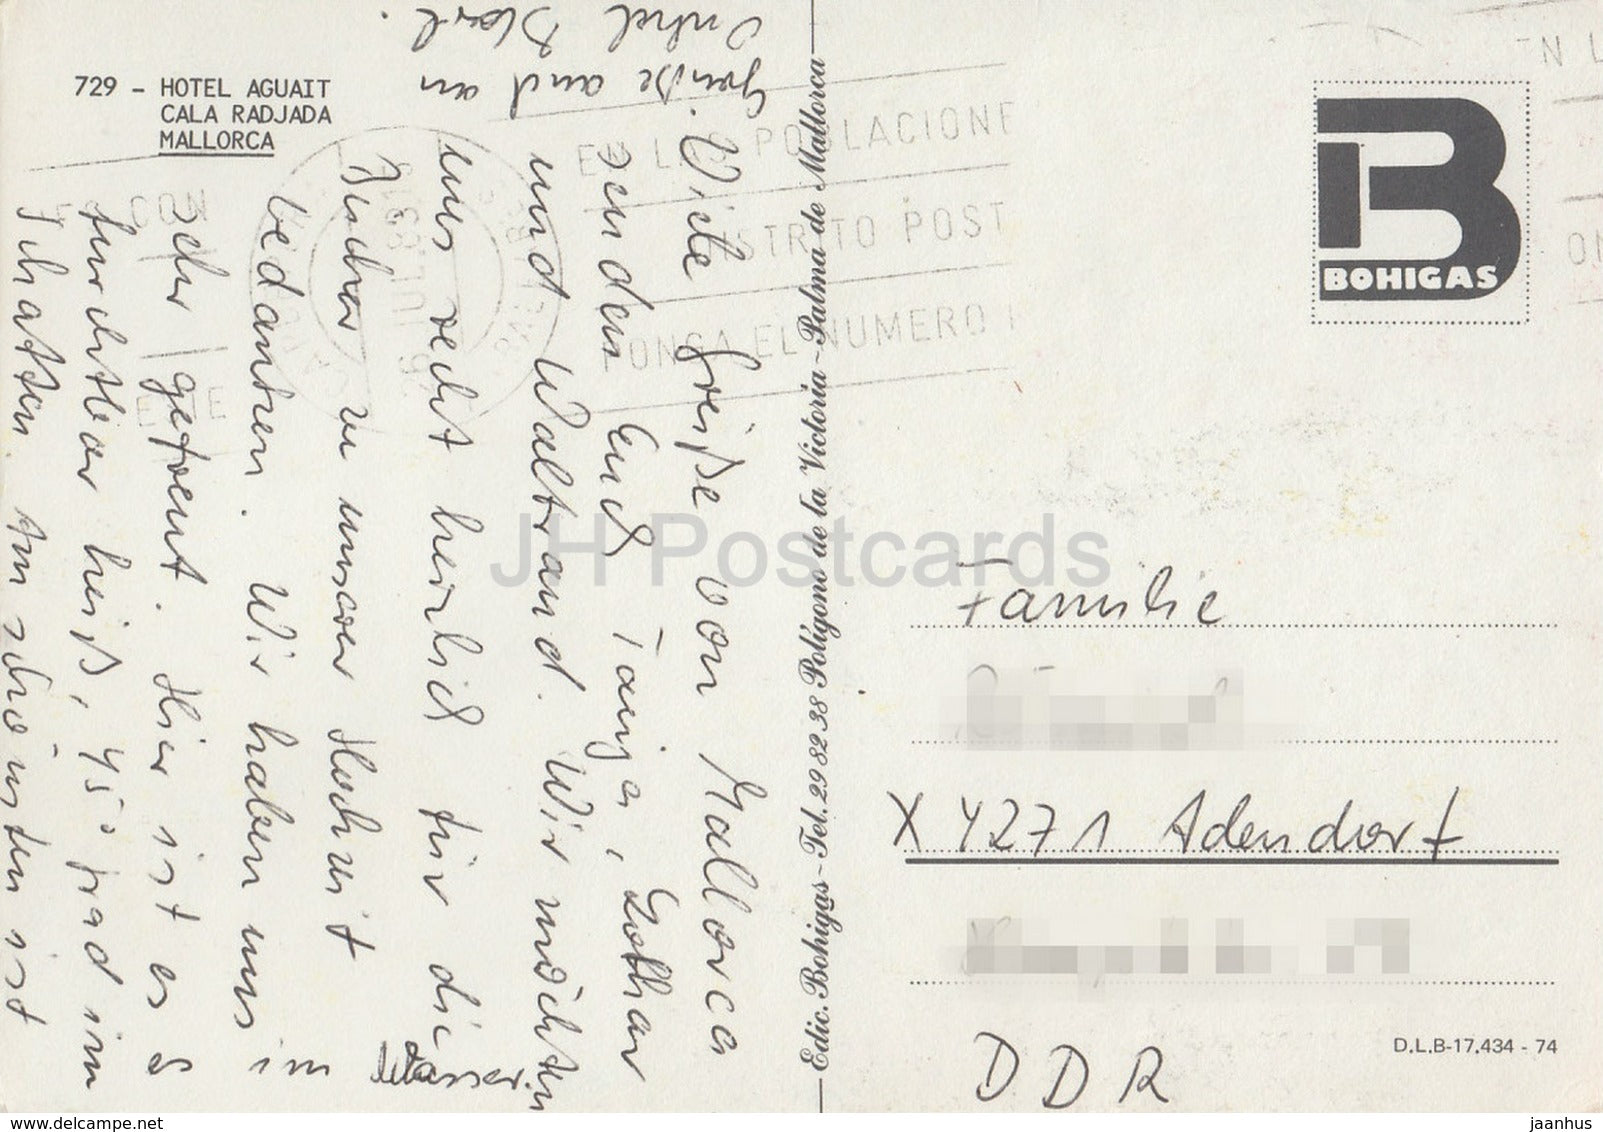 729 - HOTEL AGUAIT
CALA RADJADA
MALLORCA
Viele Grüße von Mallorca
senden Euch Tanja, Lothar
und Waltraud. Wir möchten
uns recht herzlich für die
Bücher zu unserer Hochzeit
bedanken. Wir haben uns
sehr gefreut. Hier ist es
furchtbar heiß, 45° Grad im
Schatten. Am schönsten ist
es im Wasser.
Grüße and an
Onkel Karl.
Edic. Bohigas - Tel. 29 82 38 Polígono de la Victoria - Palma de Mallorca
BOHIGAS
EN LAS POBLACIONE
DISTRITO POST
PONGA EL NUMERO
JUL. 83
Familie
X 4271 Adendorf
DDR
D.L.B-17.434 - 74
JH Postcards
www.delcampe.net
jaanhus